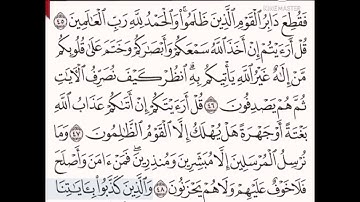 فَقُطِعَ دَابِرُ ٱلْقَوْمِ ٱلَّذِينَ ظَلَمُوا۟ ۚ وَٱلْحَمْدُ لِلَّهِ رَبِّ ٱلْعَـٰلَمِينَ ٤٥
قُلْ أَرَءَيْتُمْ إِنْ أَخَذَ ٱللَّهُ سَمْعَكُمْ وَأَبْصَـٰرَكُمْ وَخَتَمَ عَلَىٰ قُلُوبِكُم
مَّنْ إِلَـٰهٌ غَيْرُ ٱللَّهِ يَأْتِيكُم بِهِ ۗ ٱنظُرْ كَيْفَ نُصَرِّفُ ٱلْـَٔايَـٰتِ
ثُمَّ هُمْ يَصْدِفُونَ ٤٦ قُلْ أَرَءَيْتَكُمْ إِنْ أَتَىٰكُمْ عَذَابُ ٱللَّهِ
بَغْتَةً أَوْ جَهْرَةً هَلْ يُهْلَكُ إِلَّا ٱلْقَوْمُ ٱلظَّـٰلِمُونَ ٤٧ وَمَا
نُرْسِلُ ٱلْمُرْسَلِينَ إِلَّا مُبَشِّرِينَ وَمُنذِرِينَ ۖ فَمَنْ ءَامَنَ وَأَصْلَحَ
فَلَا خَوْفٌ عَلَيْهِمْ وَلَا هُمْ يَحْزَنُونَ ٤٨ وَٱلَّذِينَ كَذَّبُوا۟ بِـَٔايَـٰتِنَا